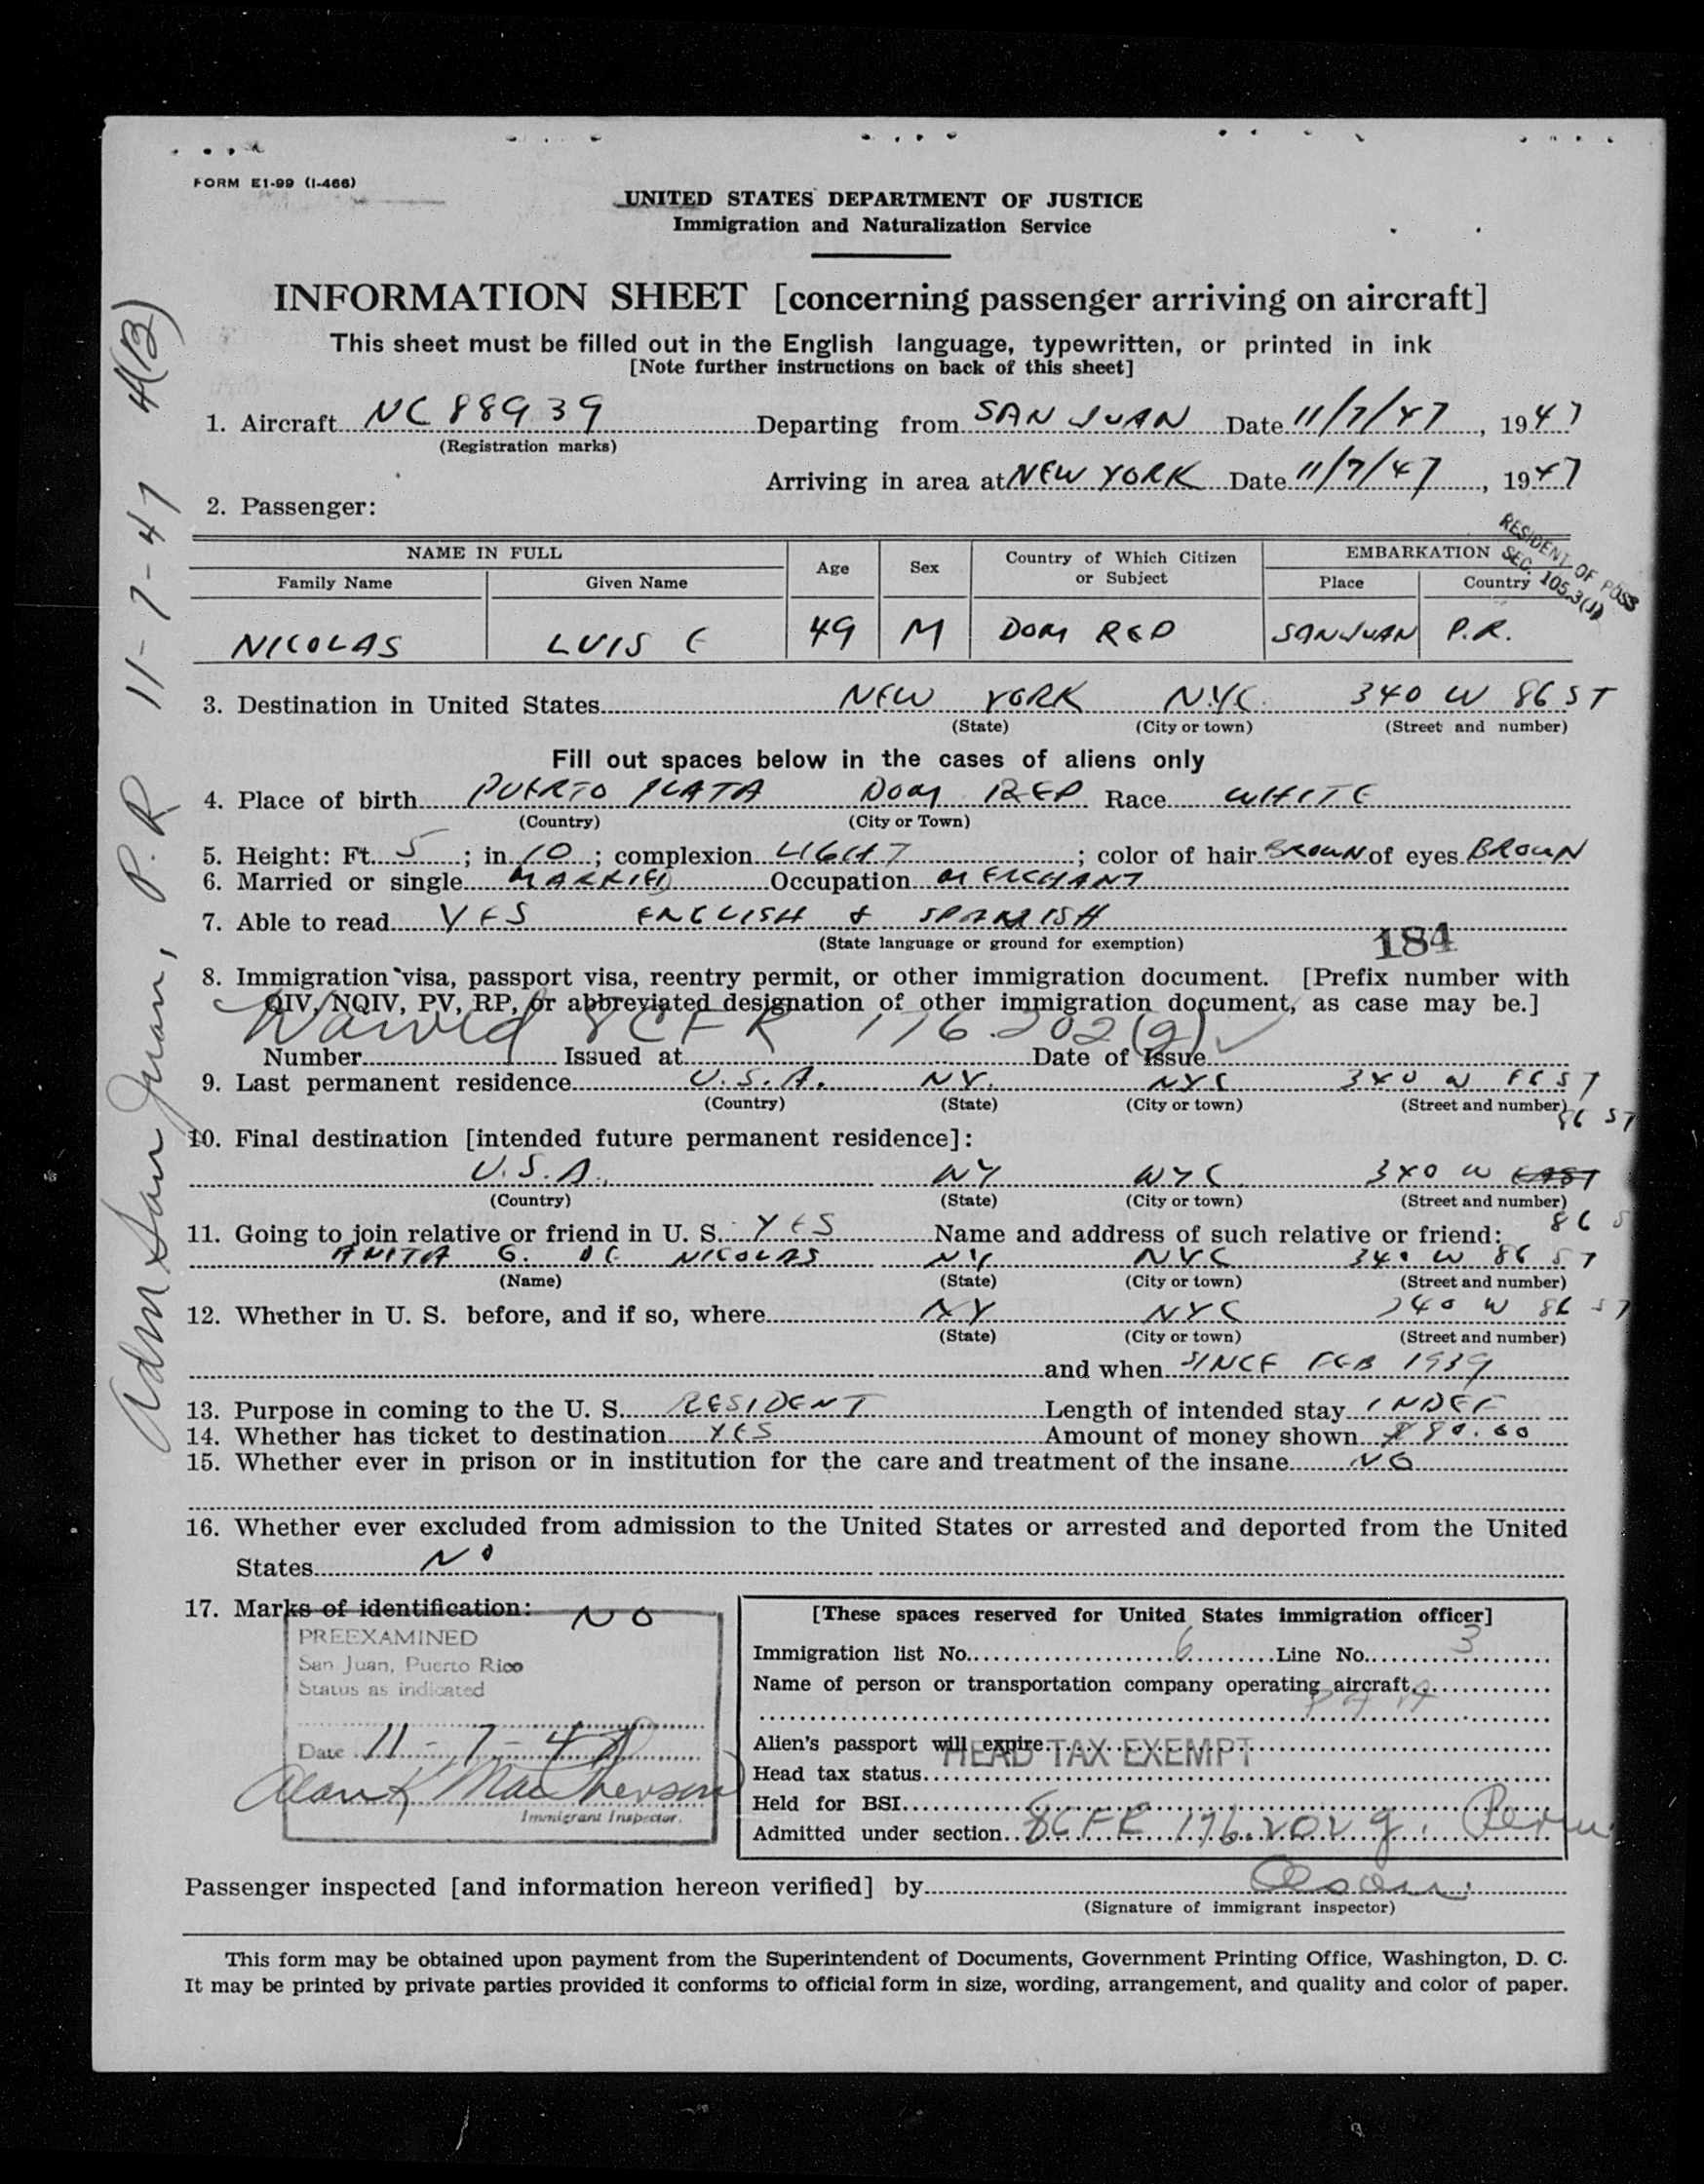 FORM E1-99 (I-466)
UNITED STATES DEPARTMENT OF JUSTICE
Immigration and Naturalization Service
INFORMATION SHEET [concerning passenger arriving on aircraft]
This sheet must be filled out in the English language, typewritten, or printed in ink
[Note further instructions on back of this sheet]
1. Aircraft NC 88939 Departing from SAN JUAN Date 11/7/47, 1947
(Registration marks)
Arriving in area at NEW YORK Date 11/7/47, 1947
2. Passenger:
RESIDENT OF POSS
SEC. 105.3(J)
NAME IN FULL Age Sex Country of Which Citizen or Subject EMBARKATION
Family Name Given Name Place Country
NICOLAS LUIS E 49 M DOM REP SAN JUAN P.R.
3. Destination in United States NEW YORK NYC 340 W 86 ST
(State) (City or town) (Street and number)
Fill out spaces below in the cases of aliens only
4. Place of birth PUERTO PLATA DOM REP Race WHITE
(Country) (City or Town)
5. Height: Ft. 5; in. 10; complexion LIGHT; color of hair BROWN of eyes BROWN
6. Married or single MARRIED Occupation MERCHANT
7. Able to read YES ENGLISH & SPANISH
(State language or ground for exemption)
184
8. Immigration visa, passport visa, reentry permit, or other immigration document. [Prefix number with
QIV, NQIV, PV, RP, or abbreviated designation of other immigration document, as case may be.]
Waived 8 CFR 176.202(g)
Number Issued at Date of Issue
9. Last permanent residence U.S.A. NY. NYC 340 W 86 ST
(Country) (State) (City or town) (Street and number)
86 ST
10. Final destination [intended future permanent residece]:
U.S.A. NY NYC 340 W EAST
(Country) (State) (City or town) (Street and number)
86 S
11. Going to join relative or friend in U. S. YES Name and address of such relative or friend:
ANITA G. DE NICOLAS NY NYC 340 W 86 ST
(Name) (State) (City or town) (Street and number)
12. Whether in U. S. before, and if so, where NY NYC 340 W 86 ST
(State) (City or town) (Street and number)
and when SINCE FEB 1939
13. Purpose in coming to the U. S. RESIDENT Length of intended stay INDEF
14. Whether has ticket to destination YES Amount of money shown $80.00
15. Whether ever in prison or in institution for the care and treatment of the insane NO
16. Whether ever excluded from admission to the United States or arrested and deported from the United
States NO
17. Marks of identification: NO
PREEXAMINED
San Juan, Puerto Rico
Status as indicated
Date 11-7-47
Alan K MacPherson
Immigrant Inspector.
[These spaces reserved for United States immigration officer]
Immigration list No. 6 Line No. 3
Name of person or transportation company operating aircraft
PAA
Alien's passport will expire
HEAD TAX EXEMPT
Head tax status
Held for BSI
Admitted under section 8 CFR 176.202 g.
Passenger inspected [and information hereon verified] by
(Signature of immigrant inspector)
This form may be obtained upon payment from the Superintendent of Documents, Government Printing Office, Washington, D. C.
It may be printed by private parties provided it conforms to official form in size, wording, arrangement, and quality and color of paper.
Adm San Juan, P.R 11-7-47 4(B)